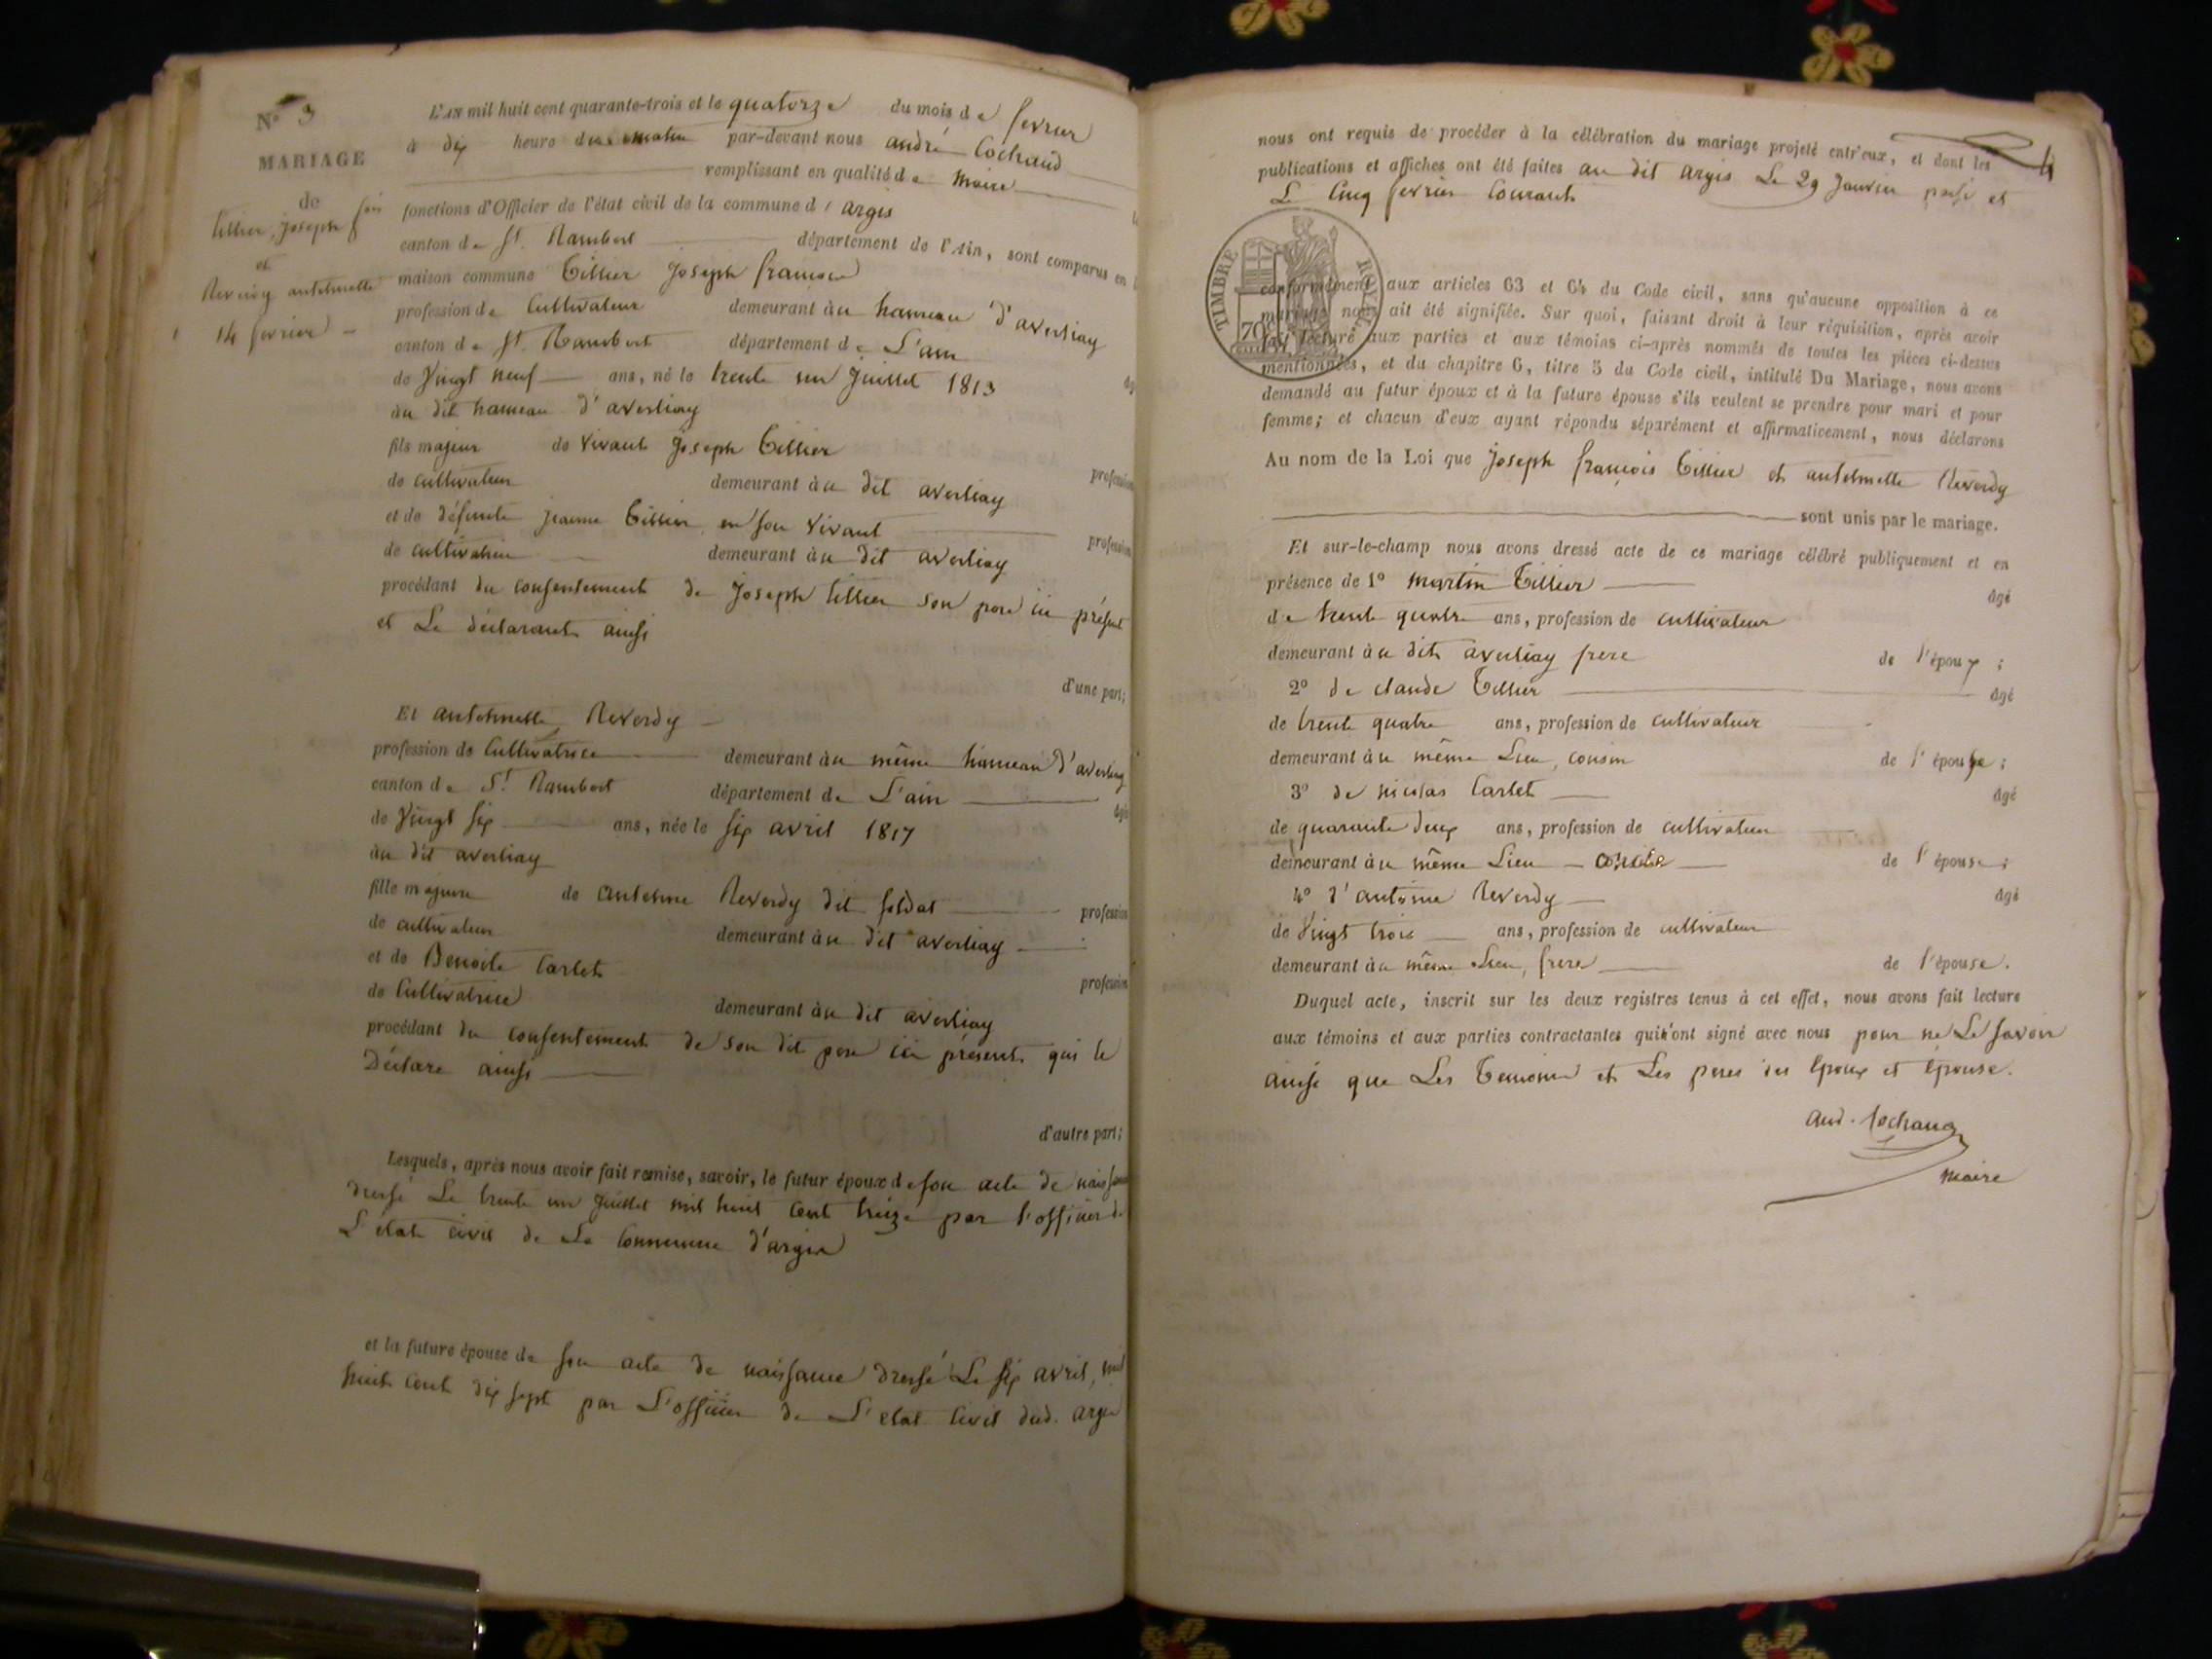 N° 3
MARIAGE
de
tillier, joseph fois
et
Reverdy antelmette
14 fevrier
L'AN mil huit cent quarante-trois et le quatorze du mois de fevrier
à dix heure du matin par-devant nous andré Cochaud
remplissant en qualité de Maire
fonctions d'Officier de l'état civil de la commune d'argis
canton de St. Rambert département de l'Ain, sont comparus en
maison commune Tillier Joseph françois
profession de Cultivateur demeurant au hameau d'averliay
canton de St. Rambert département de L'ain
de Vingt neuf ans, né le trente un Juillet 1813 âg
au dit hameau d'averliay
fils majeur de vivant Joseph Tillier
de cultivateur demeurant au dit averliay profession
et de défunte jeanne Tillier en son vivant
de cultivatrice demeurant au dit averliay profession
procédant du consentement de Joseph tillier son pere ici présent
et Le déclarant ainsi
d'une part;
Et antelmette Reverdy
profession de Cultivatrice demeurant au même hameau d'averliay
canton de St. Rambert département de L'ain
de Vingt six ans, née le six avril 1817 âgé
au dit averliay
fille majeure de antelme Reverdy dit soldat profession
de cultivateur demeurant au dit averliay
et de Benoite Carlet profession
de Cultivatrice demeurant au dit averliay
procédant du consentement de son dit pere ici présent qui le
Déclare ainsi
d'autre part;
Lesquels, après nous avoir fait remise, savoir, le futur époux de son acte de naissance
dressé Le trente un Juillet mil huit cent treize par l'officier de
L'état civil de La Commune d'argis
et la future épouse de son acte de naissance dressé Le six avril, mil
huit cent dix sept par L'officier de L'etat civil dud. argis
4
nous ont requis de procéder à la célébration du mariage projeté entr'eux, et dont les
publications et affiches ont été faites au dit argis Le 29 Janvier passé et
Le Cinq fevrier Courant
TIMBRE ROYAL
70c
conformément aux articles 63 et 64 du Code civil, sans qu'aucune opposition à ce
mariage nous ait été signifiée. Sur quoi, faisant droit à leur réquisition, après avoir
fait lecture aux parties et aux témoins ci-après nommés de toutes les pièces ci-dessus
mentionnées, et du chapitre 6, titre 5 du Code civil, intitulé Du Mariage, nous avons
demandé au futur époux et à la future épouse s'ils veulent se prendre pour mari et pour
femme; et chacun d'eux ayant répondu séparément et affirmativement, nous déclarons
Au nom de la Loi que Joseph françois Tillier et antelmette Reverdy
sont unis par le mariage.
Et sur-le-champ nous avons dressé acte de ce mariage célébré publiquement et en
présence de 1° Martin Tillier âgé
de trente quatre ans, profession de cultivateur
demeurant au dit averliay frere de l'époux;
2° de claude Tillier âgé
de trente quatre ans, profession de cultivateur
demeurant au même Lieu, cousin de l'épouse;
3° de nicolas Carlet âgé
de quarante deux ans, profession de cultivateur
demeurant au même Lieu oncle de l'épouse;
4° d'antoine Reverdy âgé
de Vingt trois ans, profession de cultivateur
demeurant au même Lieu, frere de l'épouse.
Duquel acte, inscrit sur les deux registres tenus à cet effet, nous avons fait lecture
aux témoins et aux parties contractantes qui n'ont signé avec nous pour ne Le savoir
ainsi que Les Temoins et Les peres des époux et épouse.
And. Cochaud
Maire